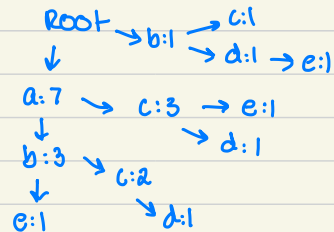 Root → b:1 → c:1
→ d:1 → e:1
a:7 → c:3 → e:1
→ d:1
b:3 → c:2
e:1 → d:1